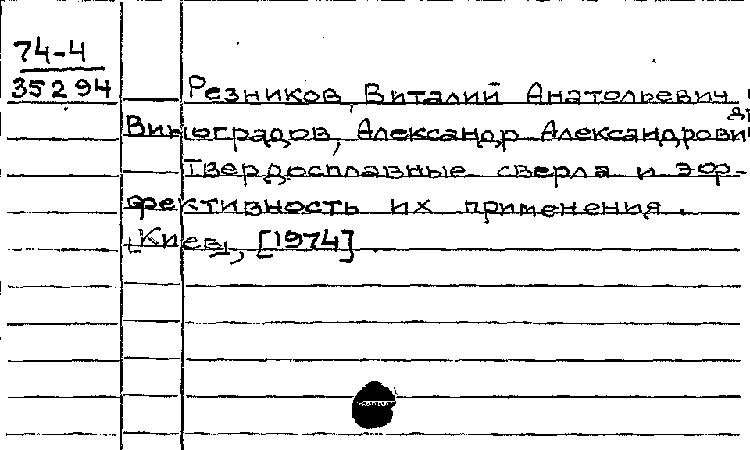 74-4
35294
Резников, Виталий Анатольевич,
Виноградов, Александр Александрович
Твердосплавные сверла и эф-
фективность их применения.
[Киев], [1974]